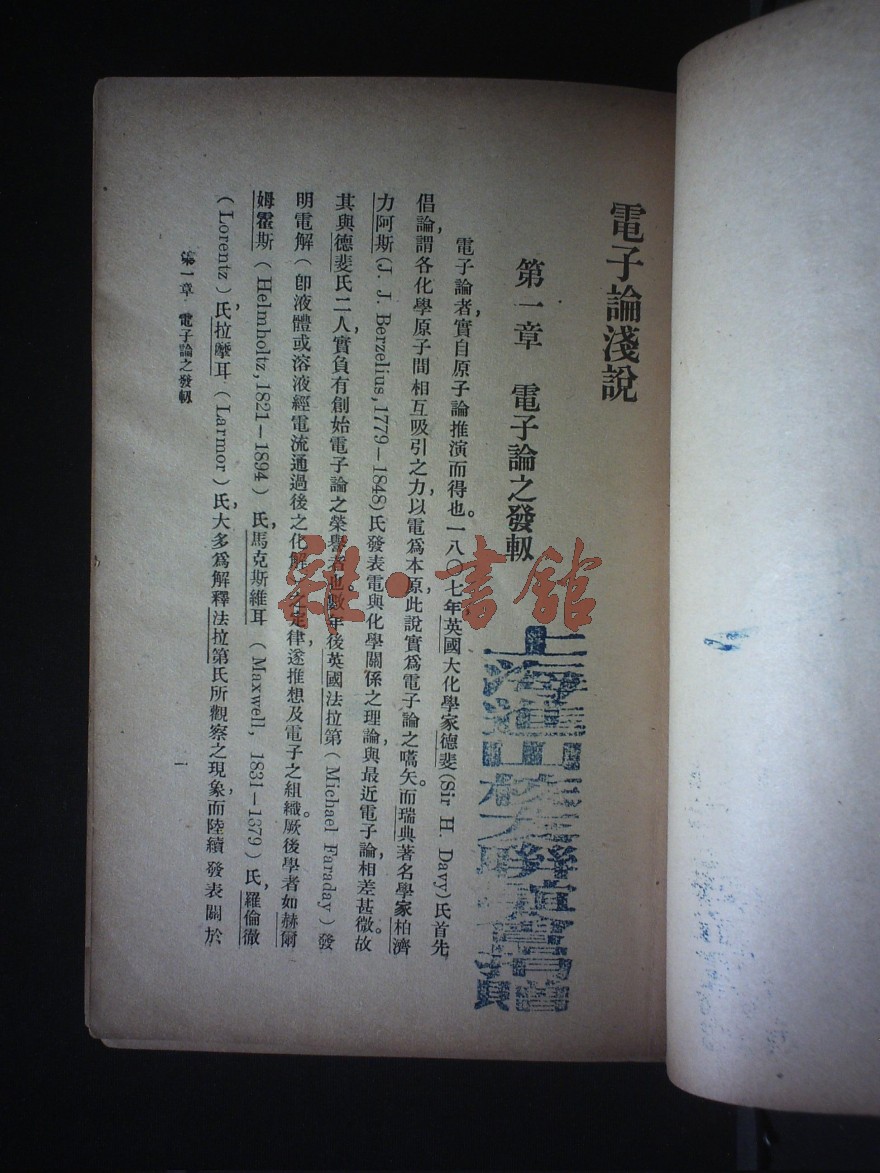 電子論淺說
第一章 電子論之發軔
電子論者，實自原子論推演而得也。一八〇七年英國大化學家德斐(Sir H. Davy)氏首先
倡論，謂各化學原子間相互吸引之力，以電爲本原，此說實爲電子論之嚆矢。而瑞典著名學家柏濟
力阿斯(J. J. Berzelius, 1779—1848)氏發表電與化學關係之理論，與最近電子論，相差甚微。故
其與德斐氏二人，實負有創始電子論之榮譽者也。數年後英國法拉第(Michael Faraday)發
明電解(卽液體或溶液經電流通過後之化解)之定律，遂推想及電子之組織。厥後學者如赫爾
姆霍斯(Helmholtz, 1821—1894)氏，馬克斯維耳(Maxwell, 1831—1879)氏，羅倫徹
(Lorentz)氏，拉摩耳(Larmor)氏，大多爲解釋法拉第氏所觀察之現象，而陸續發表關於
第一章 電子論之發軔
一
雜·書館